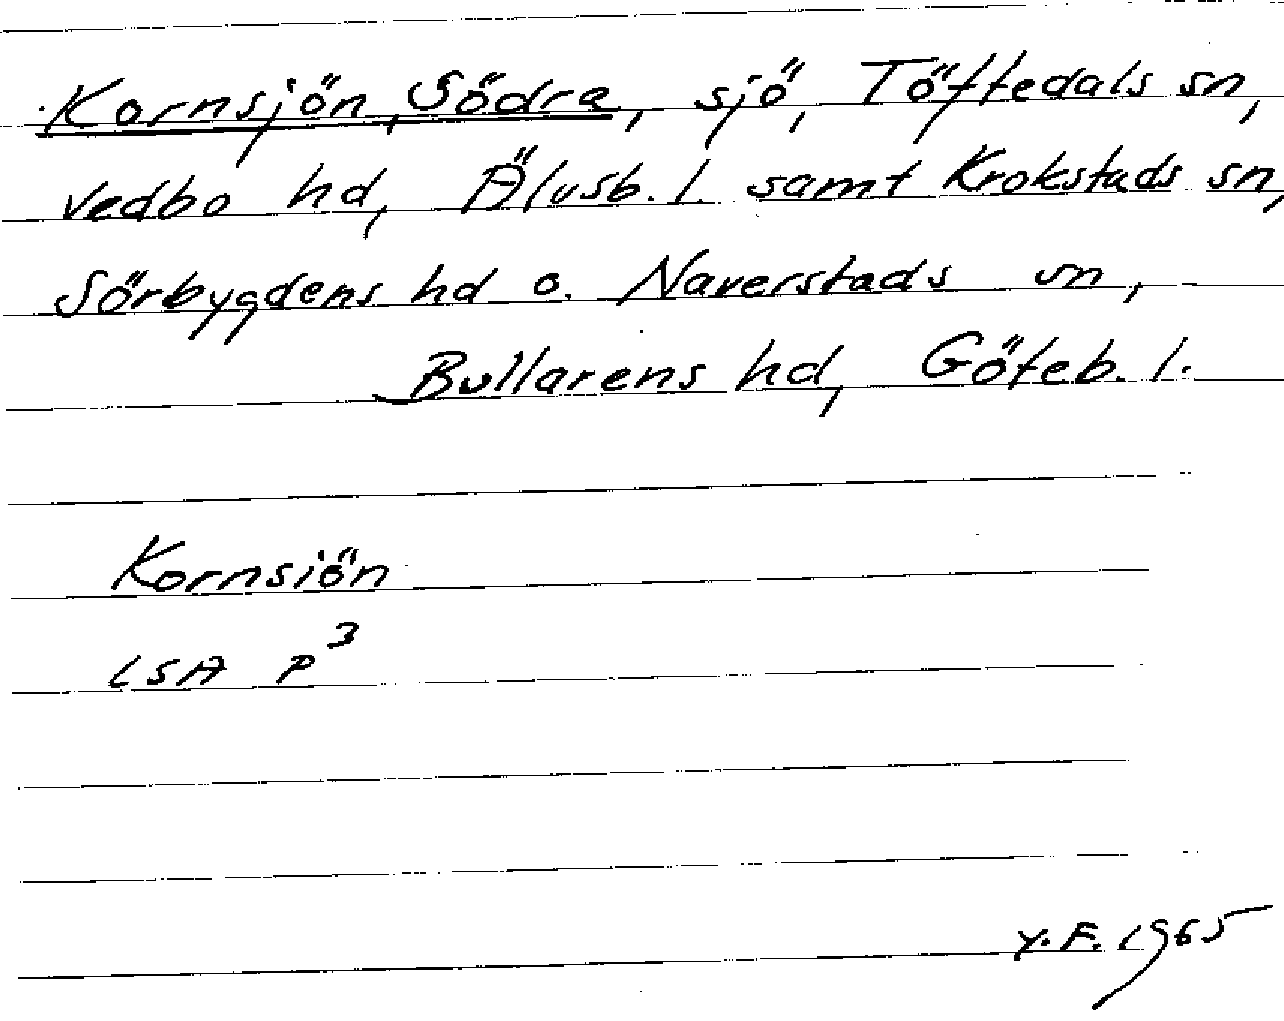 Kornsjön, Södra, sjö, Töftedals sn,
Vedbo hd, Älvsb. l. samt Krokstads sn,
Sörbygdens hd o. Naverstads sn,
Bullarens hd, Göteb. l.
Kornsiön
LSA P³
Y.F. 1965